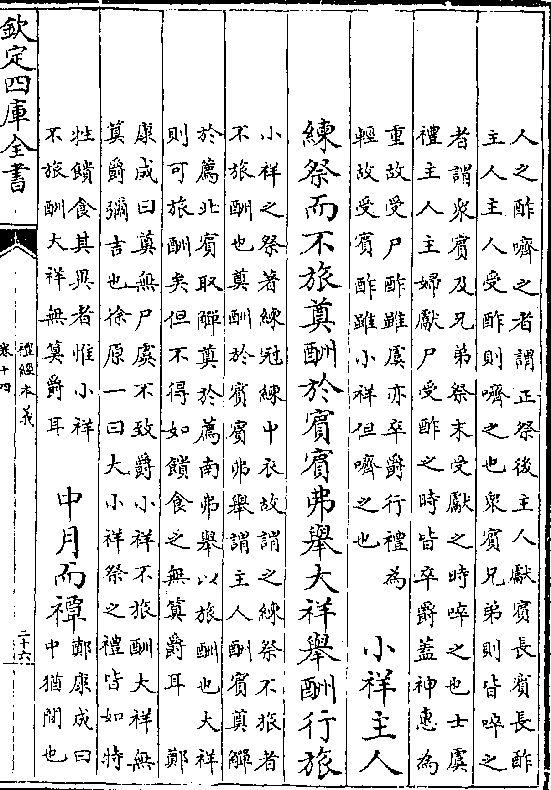 人之酢嚌之者謂正祭後主人獻賓長賓長酢
主人主人受酢則嚌之也衆賓兄弟則皆啐之
者謂衆賓及兄弟祭末受獻之時啐之也士虞
禮主人主婦獻尸受酢之時皆卒爵蓋神惠為
重故受尸酢雖虞亦卒爵行禮為
輕故受賓酢雖小祥但嚌之也
小祥主人
練祭而不旅奠酬於賓賓弗舉大祥舉酬行旅
小祥之祭著練冠練中衣故謂之練祭不旅者
不旅酬也奠酬於賓賓弗舉謂主人酬賓奠觶
於薦北賓取觶奠於薦南弗舉以旅酬也大祥
則可旅酬矣但不得如饋食之無算爵耳 鄭
康成曰奠無尸虞不致爵小祥不旅酬大祥無
算爵彌吉也徐原一曰大小祥祭之禮皆如特
牲饋食其異者惟小祥
不旅酬大祥無算爵耳
中月而禫
鄭康成曰
中猶間也
欽定四庫全書
禮經本義
卷十四
二十六